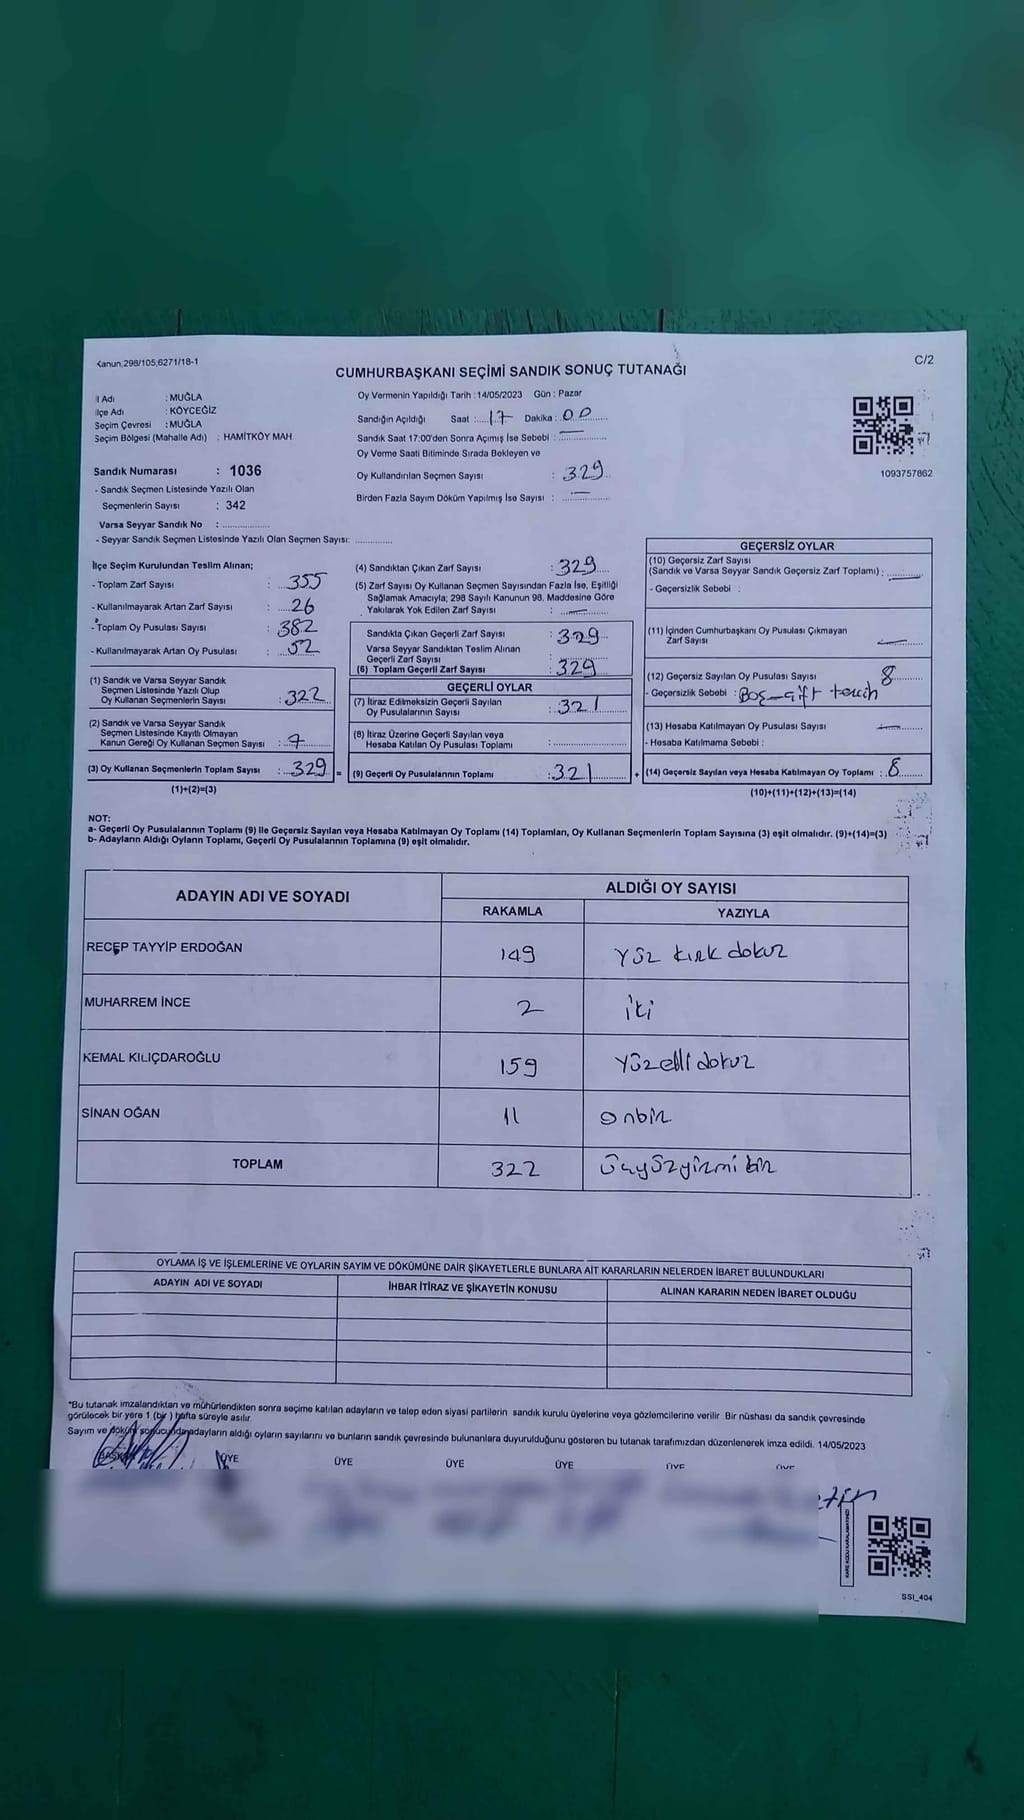 Kanun,298/105,6271/18-1
C/2
CUMHURBAŞKANI SEÇİMİ SANDIK SONUÇ TUTANAĞI
İl Adı : MUĞLA
İlçe Adı : KÖYCEĞİZ
Seçim Çevresi : MUĞLA
Seçim Bölgesi (Mahalle Adı) : HAMİTKÖY MAH
Sandık Numarası : 1036
- Sandık Seçmen Listesinde Yazılı Olan
Seçmenlerin Sayısı : 342
Varsa Seyyar Sandık No :
- Seyyar Sandık Seçmen Listesinde Yazılı Olan Seçmen Sayısı:
Oy Vermenin Yapıldığı Tarih :14/05/2023 Gün : Pazar
Sandığın Açıldığı Saat : 17 Dakika : 00
Sandık Saat 17:00'den Sonra Açımış İse Sebebi : —
Oy Verme Saati Bitiminde Sırada Bekleyen ve
Oy Kullandırılan Seçmen Sayısı : 329
Birden Fazla Sayım Döküm Yapılmış İse Sayısı : —
1093757862
İlçe Seçim Kurulundan Teslim Alınan;
- Toplam Zarf Sayısı : 355
- Kullanılmayarak Artan Zarf Sayısı : 26
- Toplam Oy Pusulası Sayısı : 382
- Kullanılmayarak Artan Oy Pusulası : 52
(1) Sandık ve Varsa Seyyar Sandık
Seçmen Listesinde Yazılı Olup
Oy Kullanan Seçmenlerin Sayısı : 322
(2) Sandık ve Varsa Seyyar Sandık
Seçmen Listesinde Kayıtlı Olmayan
Kanun Gereği Oy Kullanan Seçmen Sayısı : 7
(3) Oy Kullanan Seçmenlerin Toplam Sayısı : 329 =
(1)+(2)=(3)
(4) Sandıktan Çıkan Zarf Sayısı : 329
(5) Zarf Sayısı Oy Kullanan Seçmen Sayısından Fazla İse, Eşitliği
Sağlamak Amacıyla; 298 Sayılı Kanunun 98. Maddesine Göre
Yakılarak Yok Edilen Zarf Sayısı : —
Sandıkta Çıkan Geçerli Zarf Sayısı : 329
Varsa Seyyar Sandıktan Teslim Alınan
Geçerli Zarf Sayısı :
(6) Toplam Geçerli Zarf Sayısı : 329
GEÇERLİ OYLAR
(7) İtiraz Edilmeksizin Geçerli Sayılan
Oy Pusulalarının Sayısı : 321
(8) İtiraz Üzerine Geçerli Sayılan veya
Hesaba Katılan Oy Pusulası Toplamı :
(9) Geçerli Oy Pusulalarının Toplamı : 321 +
GEÇERSİZ OYLAR
(10) Geçersiz Zarf Sayısı
(Sandık ve Varsa Seyyar Sandık Geçersiz Zarf Toplamı) : —
- Geçersizlik Sebebi :
(11) İçinden Cumhurbaşkanı Oy Pusulası Çıkmayan
Zarf Sayısı : —
(12) Geçersiz Sayılan Oy Pusulası Sayısı : 8
- Geçersizlik Sebebi : Boş - çift tercih
(13) Hesaba Katılmayan Oy Pusulası Sayısı : —
- Hesaba Katılmama Sebebi :
(14) Geçersiz Sayılan veya Hesaba Katılmayan Oy Toplamı : 8
(10)+(11)+(12)+(13)=(14)
NOT:
a- Geçerli Oy Pusulalarının Toplamı (9) ile Geçersiz Sayılan veya Hesaba Katılmayan Oy Toplamı (14) Toplamları, Oy Kullanan Seçmenlerin Toplam Sayısına (3) eşit olmalıdır. (9)+(14)=(3)
b- Adayların Aldığı Oyların Toplamı, Geçerli Oy Pusulalarının Toplamına (9) eşit olmalıdır.
ADAYIN ADI VE SOYADI
ALDIĞI OY SAYISI
RAKAMLA YAZIYLA
RECEP TAYYİP ERDOĞAN 149 Yüz kırk dokuz
MUHARREM İNCE 2 iki
KEMAL KILIÇDAROĞLU 159 Yüzelli dokuz
SİNAN OĞAN 11 onbir
TOPLAM 322 üçyüzyirmi bir
OYLAMA İŞ VE İŞLEMLERİNE VE OYLARIN SAYIM VE DÖKÜMÜNE DAİR ŞİKAYETLERLE BUNLARA AİT KARARLARIN NELERDEN İBARET BULUNDUKLARI
ADAYIN ADI VE SOYADI İHBAR İTİRAZ VE ŞİKAYETİN KONUSU ALINAN KARARIN NEDEN İBARET OLDUĞU
*Bu tutanak imzalandıktan ve mühürlendikten sonra seçime katılan adayların ve talep eden siyasi partilerin sandık kurulu üyelerine veya gözlemcilerine verilir. Bir nüshası da sandık çevresinde
görülecek bir yere 1 (bir ) hafta süreyle asılır.
Sayım ve döküm sonucunda adayların aldığı oyların sayılarını ve bunların sandık çevresinde bulunanlara duyurulduğunu gösteren bu tutanak tarafımızdan düzenlenerek imza edildi. 14/05/2023
BAŞKAN ÜYE ÜYE ÜYE ÜYE ÜYE ÜYE
SSI_404